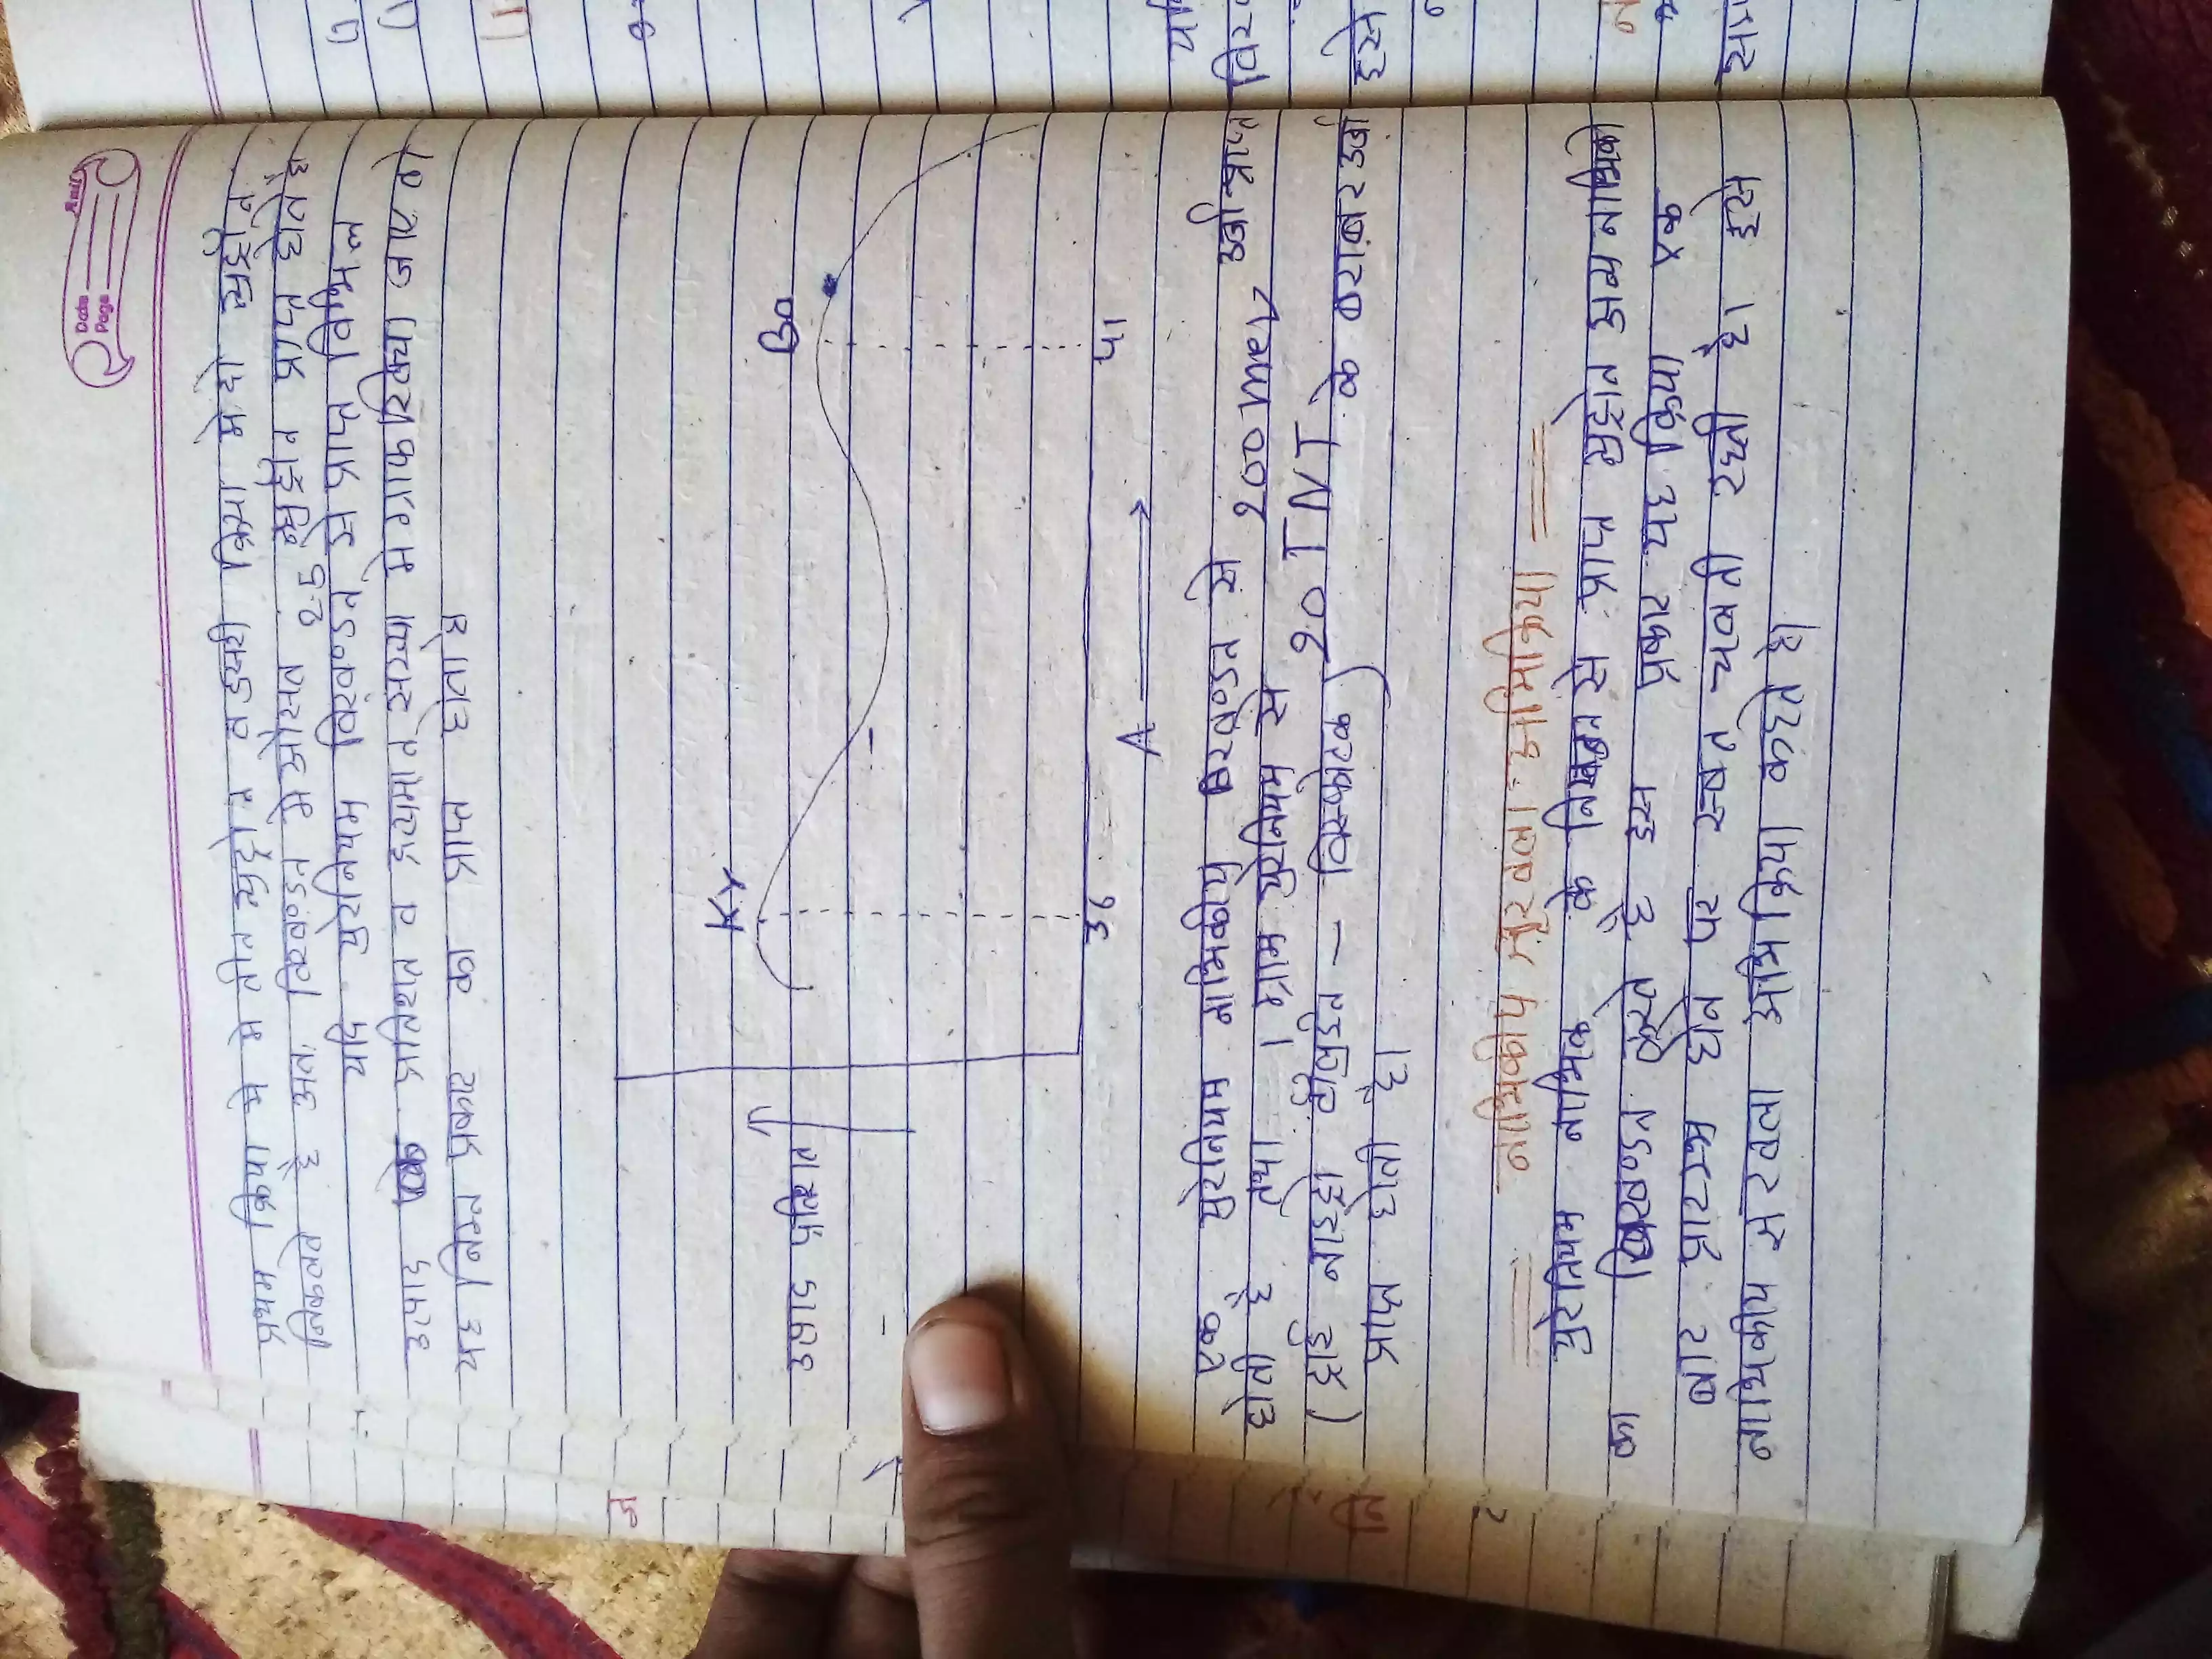 Date
Page
प्रथम क्रिया मे मे तीन न्यूट्रोन व दुसरी क्रिया मे दो न्यूट्रोन
निकलते है अत. विखण्डन मे औसत 2.5 न्यूट्रोन प्राप्त होते है
यदि युरेनियम विखण्डन से प्राप्त विभिन्न
उत्पाद प्रतिशत व द्रव्यमान संख्या मे ग्राफ खिच्या जाए तो
यह निम्न प्रकार का प्राप्त होता है
Kr
Ba
उत्पाद प्रतिशत
36
५१
A
एक युरेनियम नाभिकीय विखण्डन से २०० mev उर्जा प्राप्त
होती है तथा 1 ग्राम युरेनियम से २० TNT के बराबर उर्जा
(ट्राई नाइट्रो टोलुईन - विस्फोटक)
प्राप्त होती है।
नाभिकीय श्रृंखला अभिक्रिया
युरेनियम नाभिक के विखण्डन से प्राप्त न्युट्रोन अन्य नाभिको
का विखण्डन करते है इस प्रकार यह क्रिया एक
बार प्रारम्भ होने पर स्वत चलती रहती है। इसे
नाभिकीय संरवला अभिक्रिया कहते है।